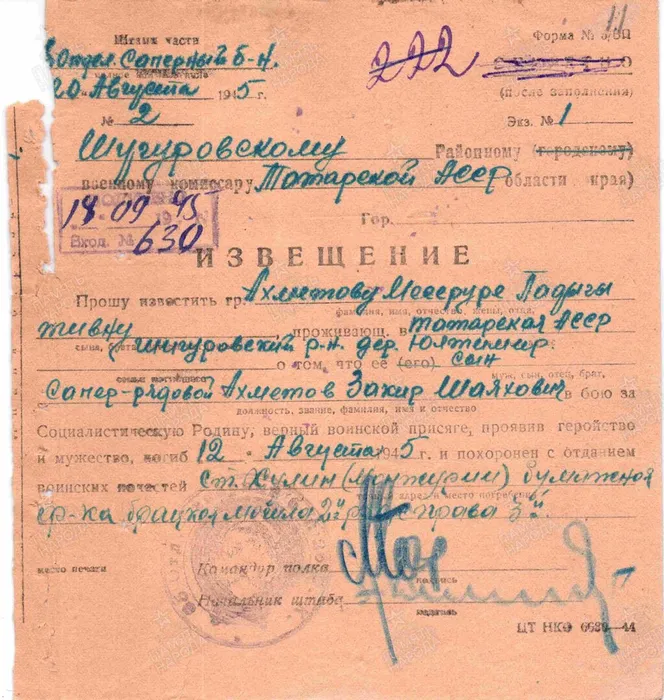 11
Штамп части
Форма № 5/БП
Отдел. Саперный б-н.
222
20 Августа 1945 г.
(после заполнения)
№ 2
Экз. № 1
Шугуровскому Районному (городскому)
военному комиссару Татарской АССР области края)
18 09 45
Гор.
Вход. № 630
ИЗВЕЩЕНИЕ
Прошу известить гр. Ахметову
фамилия, имя, отчество, жены, отца,
проживающ. в Татарская АССР
сына, брата
р-н. дер.
о том, что её (его) сын
муж, сын, отец, брат,
Сапер-рядовой Ахметов Закир Шаяхович в бою за
должность, звание, фамилия, имя и отчество
Социалистическую Родину, верный воинской присяге, проявив геройство
и мужество, погиб 12 Августа 1945 г. и похоронен с отданием
воинских почестей Ст. Хулин (Манжурии) бумажной
ф-ка братская могила 2й р справа 3й
место печати
Командир полка
подпись
Начальник штаба
подпись
ЦТ НКО 6639—44